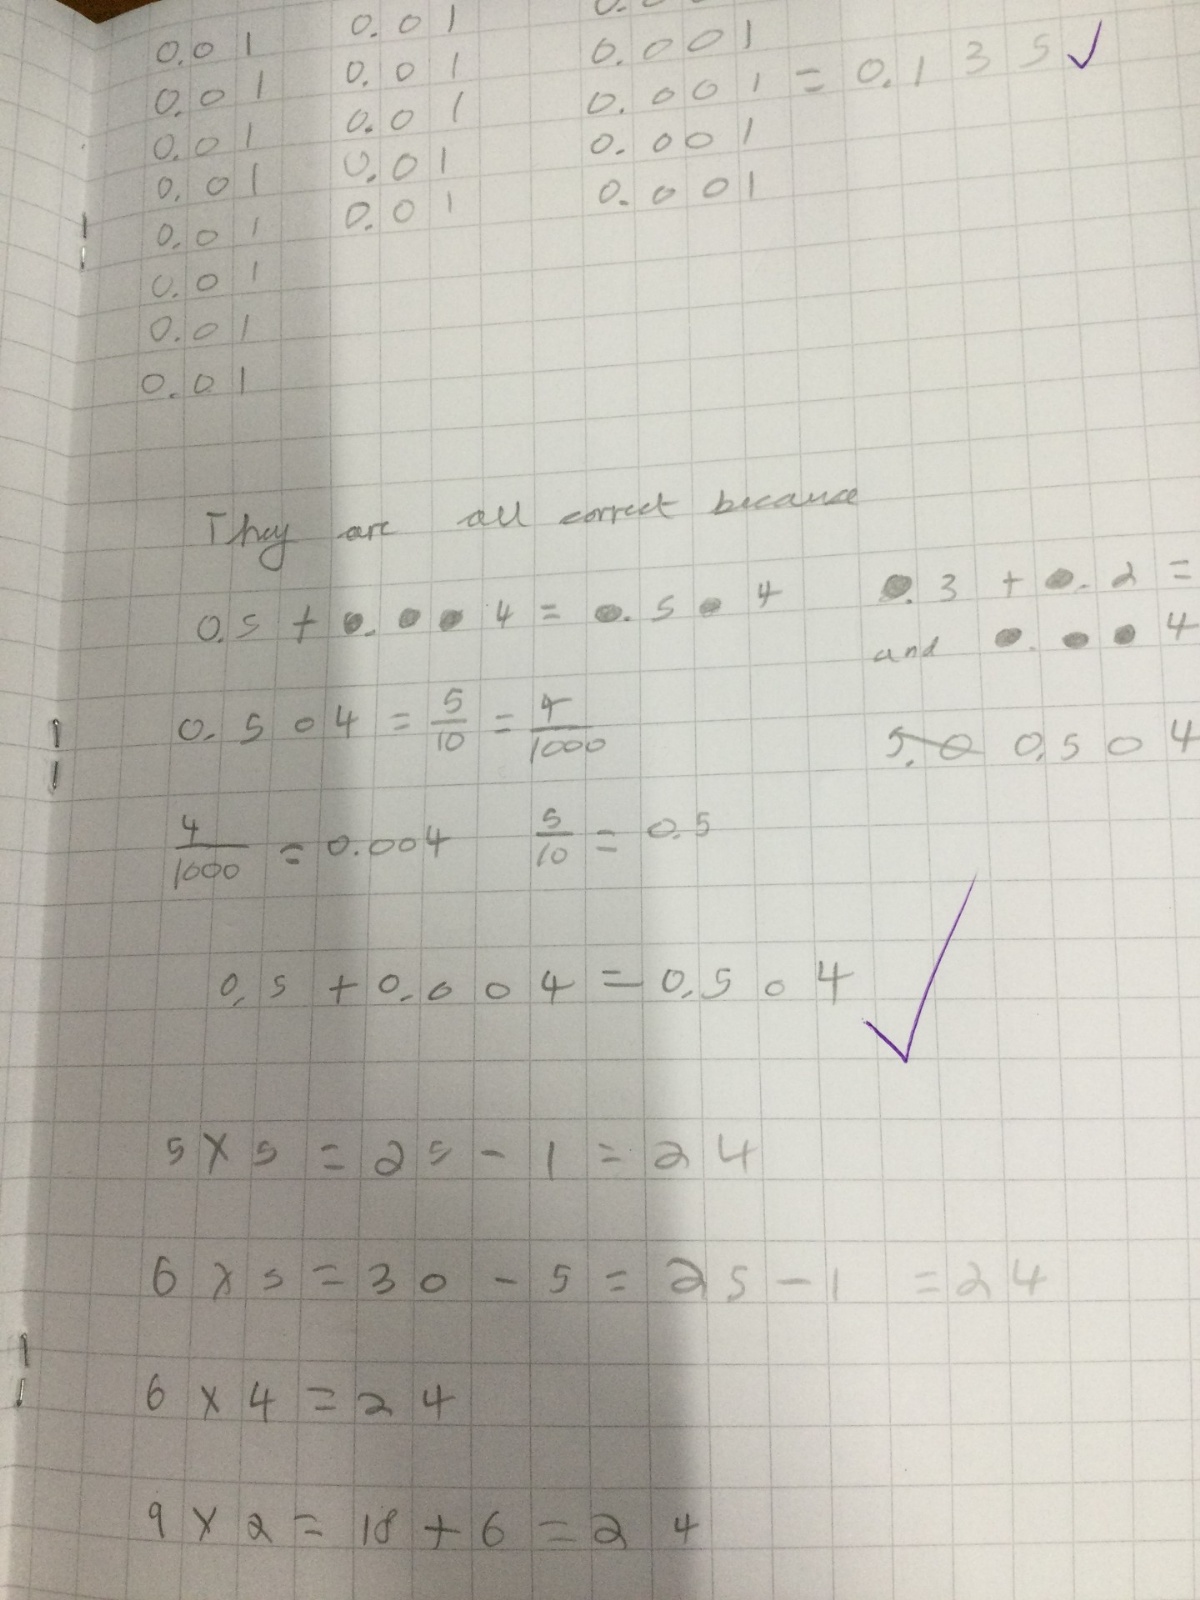 0.01 0.01
0.01 0.01 0.001
0.01 0.01 0.001 = 0.135
0.01 0.01 0.001
0.01 0.01 0.001
0.01
0.01
0.01
They are all correct because
0.5 + 0.004 = 0.504 0.3 + 0.2 =
and 0.004
0.504 = 5/10 = 4/1000
0.504
4/1000 = 0.004 5/10 = 0.5
0.5 + 0.004 = 0.504
5 × 5 = 25 - 1 = 24
6 × 5 = 30 - 5 = 25 - 1 = 24
6 × 4 = 24
9 × 2 = 18 + 6 = 24